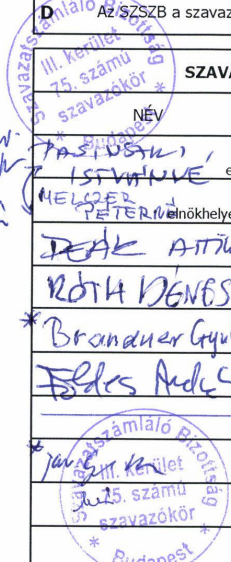 D Az SZSZB a szavaz
Szavazatszámláló Bizottság
III. kerület
75. számú
szavazókör
* Budapest *
SZAVA
NÉV
ISTVÁNNÉ e
MELCZER
PÉTERNÉ elnökhelye
DEÁK ATTI
RÓTH DÉNES
* Brandner Gyu
Földes And
Szavazatszámláló Bizottság
* jav
III. kerület
75. számú
szavazókör
* Budapest